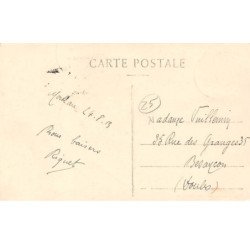 CARTE POSTALE
25
Bons baisers
Riquet
Madame Vuillemin
35 Rue des Granges 35
Besançon
(Doubs)